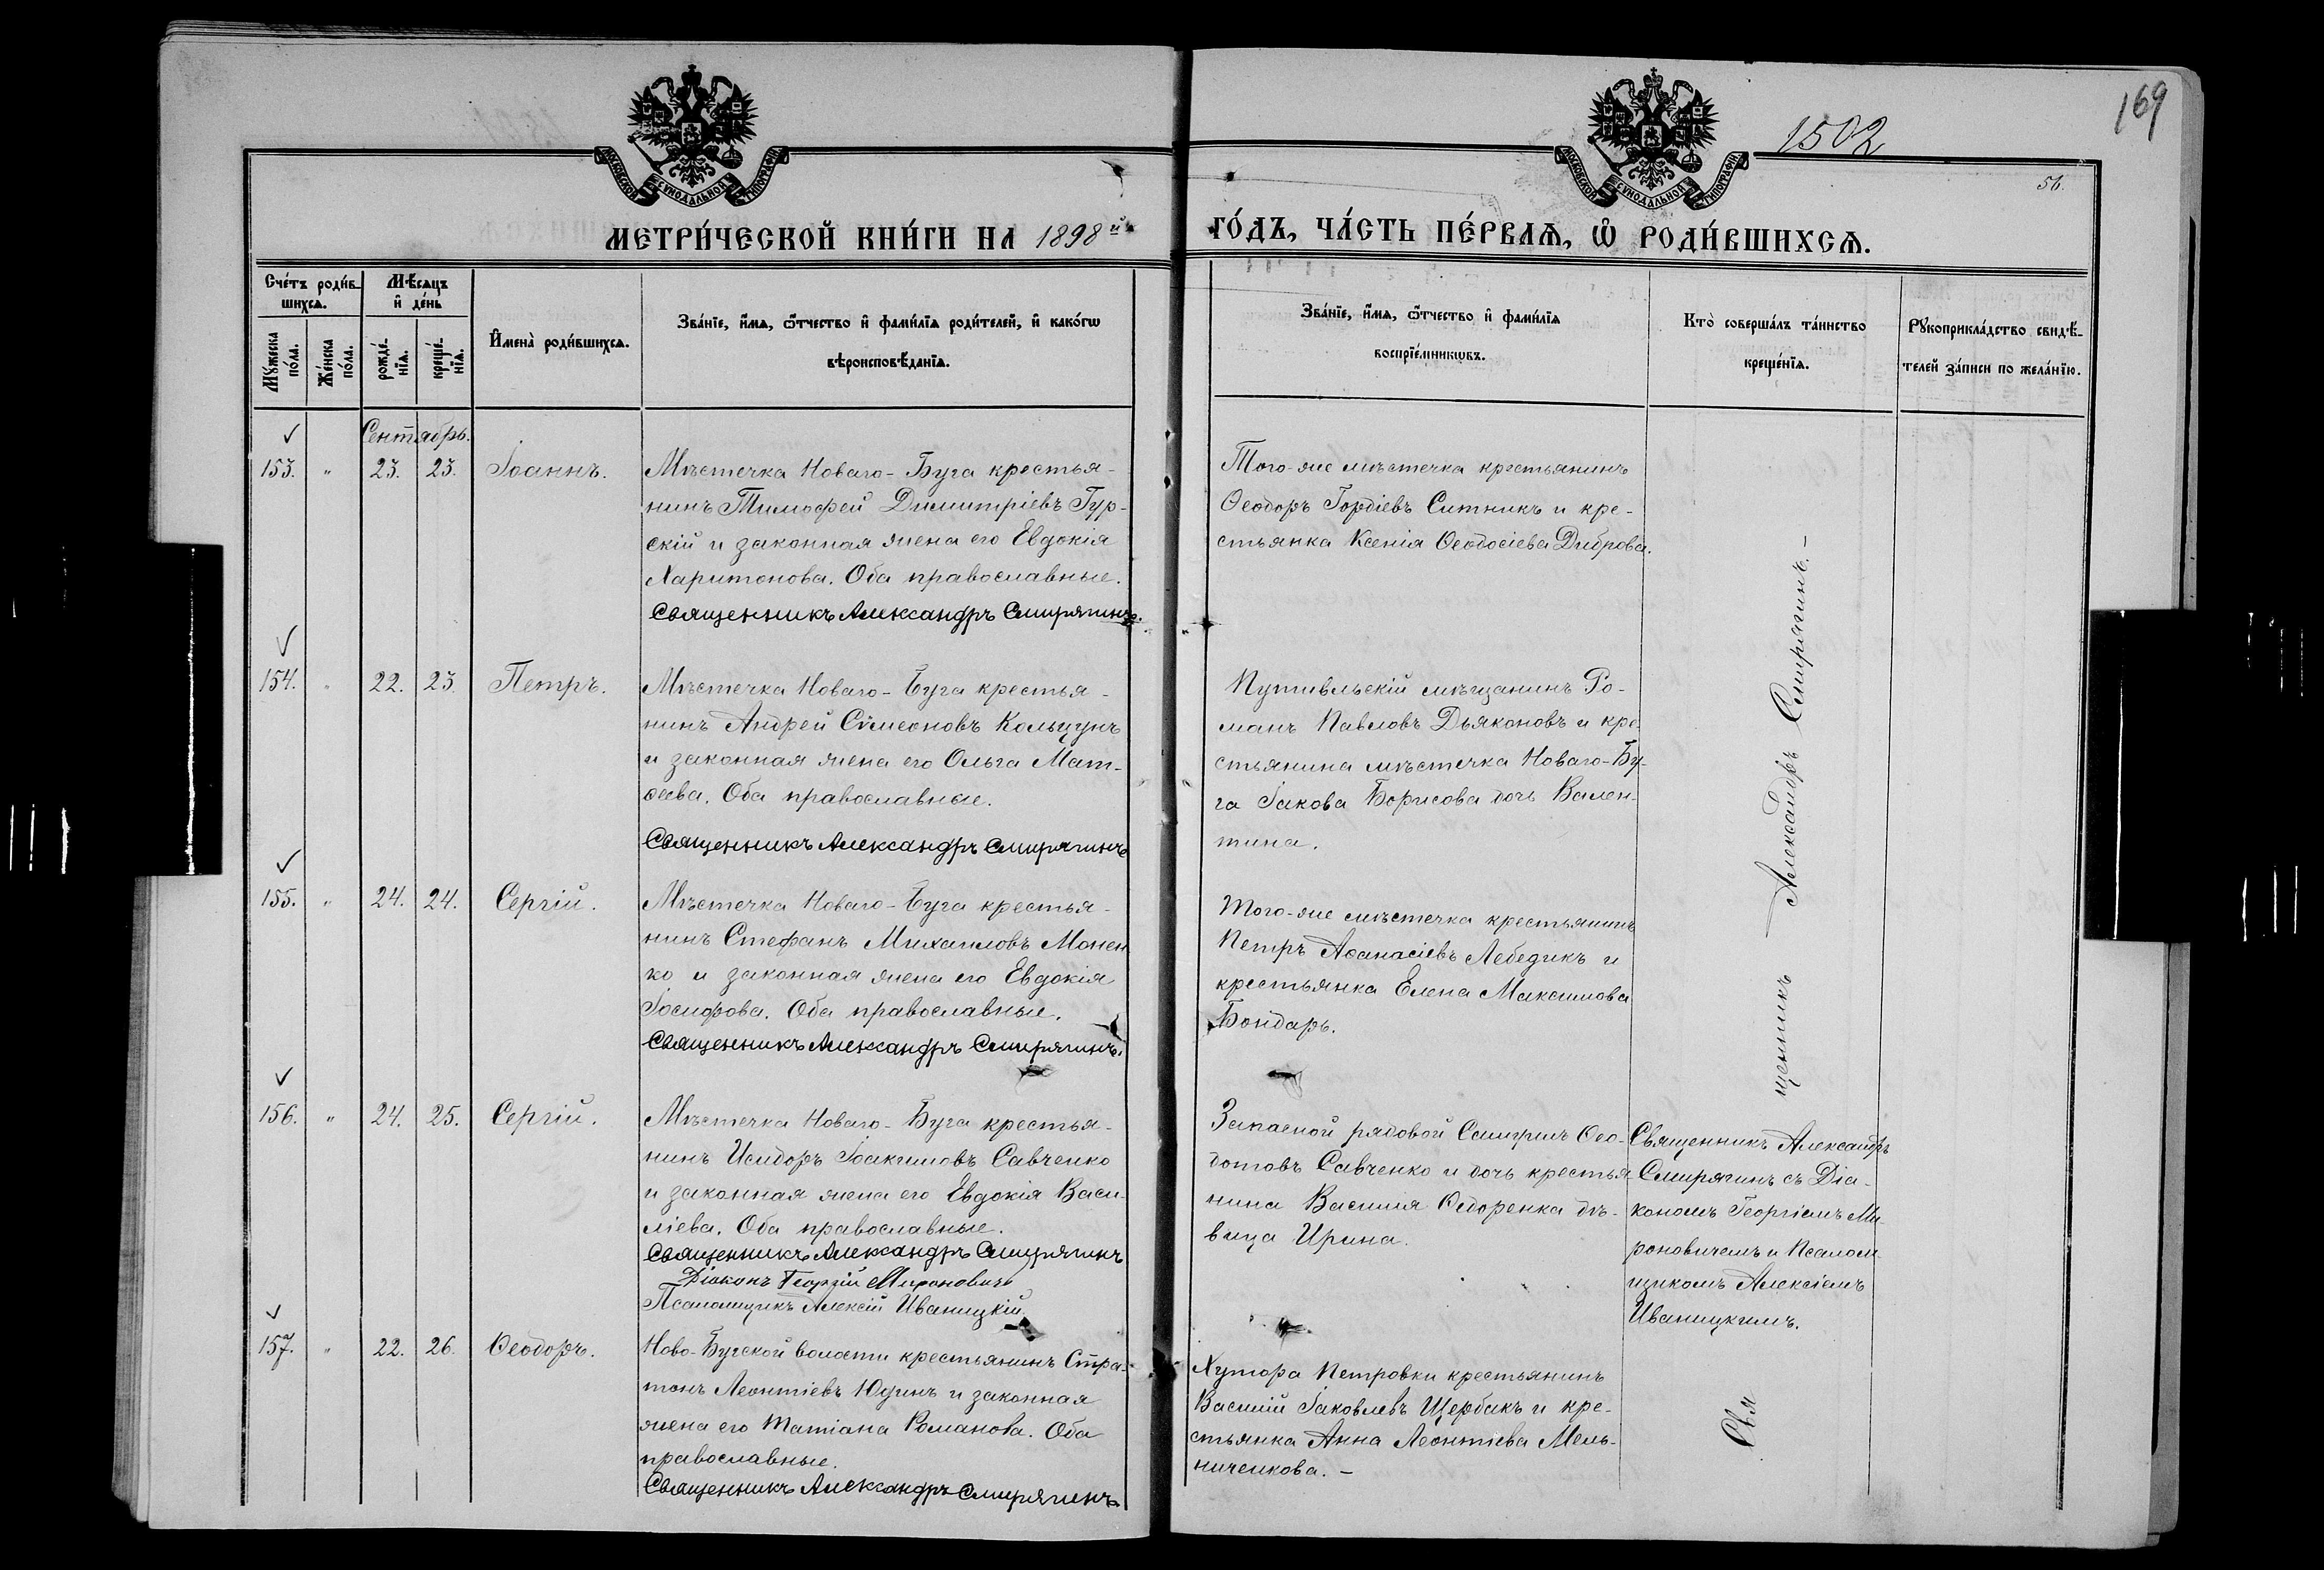 169
1502
56.
МОСКОВСКОЙ СѴНОДАЛЬНОЙ ТИПОГРАФІИ
МОСКОВСКОЙ СѴНОДАЛЬНОЙ ТИПОГРАФІИ
МЕТРИ́ЧЕСКОЙ КНИ́ГИ НА 1898й
ГО́ДЪ, ЧА́СТЬ ПЕ́РВАѦ, Ѡ҆ РОДИ́ВШИХСѦ.
Сче́тъ роди́в-
шихсѧ.
Мѣ́сѧцъ
и҆ де́нь
Мꙋ́жеска по́ла.
Же́нска по́ла.
рожде́-нїѧ.
креще́-нїѧ.
И҆мена̀ роди́вшихсѧ.
Зва́нїе, и҆́мѧ, ѻ҆́тчество и҆ фами́лїѧ роди́телей, и҆ како́гѡ
вѣроисповѣ́данїѧ.
Зва́нїе, и҆́мѧ, ѻ҆́тчество и҆ фами́лїѧ
воспрїе́мникѡвъ.
Кто̀ соверша́лъ та́инство
креще́нїѧ.
Рꙋкоприкла́дство свидѣ́-
телей за́писи по жела́нїю.
Сентябрь.
153. " 23. 23. Іоаннъ.
Мѣстечка Новаго-Буга крестья-
нинъ Тимофей Димитріевъ Гур-
скій и законная жена его Евдокія
Харитонова. Оба православные.
Священникъ Александръ Смирягинъ.
Того-же мѣстечка крестьянинъ
Ѳеодоръ Гордіевъ Ситникъ и кре-
стьянка Ксенія Ѳеодосіева Диброва.
154. " 22. 23. Петръ.
Мѣстечка Новаго-Буга крестья-
нинъ Андрей Сѵмеоновъ Кольцунъ
и законная жена его Ольга Мат-
ѳеева. Оба православные.
Священникъ Александръ Смирягинъ
Путивльскій мѣщанинъ Ро-
манъ Павловъ Дьяконовъ и кре-
стьянина мѣстечка Новаго-Бу-
га Іакова Борисова дочь Вален-
тина.
155. " 24. 24. Сергій.
Мѣстечка Новаго-Буга крестья-
нинъ Стефанъ Михаиловъ Монен
ко и законная жена его Евдокія
Іосифова. Оба православные.
Священникъ Александръ Смирягинъ.
Того-же мѣстечка крестьянинъ
Петръ Аѳанасіевъ Лебедикъ и
крестьянка Елена Максимова
Бондарь.
156. " 24. 25. Сергій.
Мѣстечка Новаго-Буга крестья-
нинъ Исидоръ Іоакимовъ Савченко
и законная жена его Евдокія Васи-
ліева. Оба православные.
Священникъ Александръ Смирягинъ
Діаконъ Георгій Мироновичъ
Псаломщикъ Алексій Иваницкій.
Запасной рядовой Ѳео-
дотовъ Савченко и дочь крестья-
нина Василія Ѳедоренка дѣ-
вица Ирина.
Священникъ Александръ
Смирягинъ съ Діа-
кономъ Георгіемъ Ми
роновичемъ и Псалом-
щикомъ Алексіемъ
Иваницкимъ.
157. " 22. 26. Ѳеодоръ.
Ново-Бугской волости крестьянинъ Стра-
тонъ Леонтіевъ Юдинъ и законная
жена его Татіана Романова. Оба
православные.
Священникъ Александръ Смирягинъ
Хутора Петровки крестьянинъ
Василій Іаковлевъ Щербакъ и кре-
стьянка Анна Леонтіева Мель-
ниченкова. –
Священникъ Александръ Смирягинъ. –